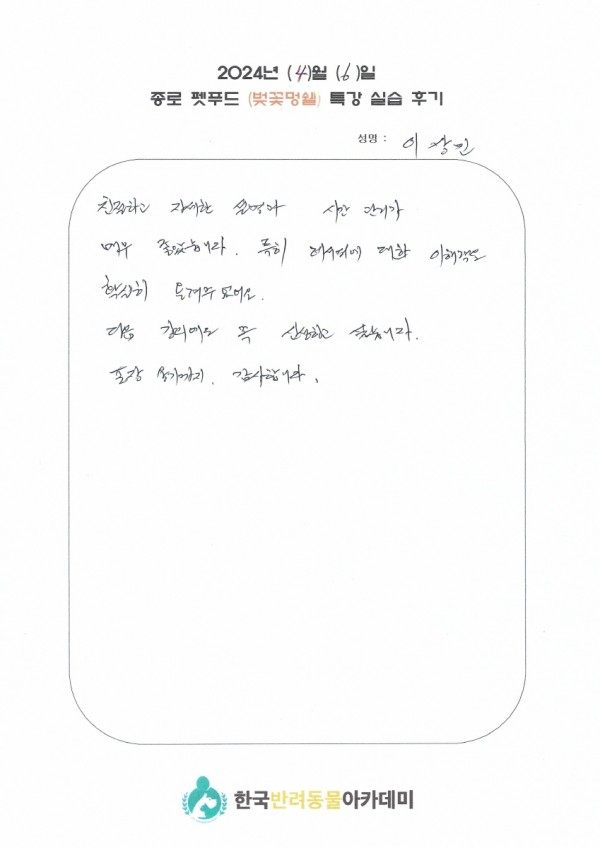 2024년 (4)월 (6)일
종로 펫푸드 (벚꽃멍쉘) 특강 실습 후기
성명 : 이창민
친절하고 자세한 설명과 시간 관리가
매우 좋았습니다. 특히 레시피에 대한 이해
확실히
다음 강의에도 꼭 신청하고 싶습니다.
포장 까지. 감사합니다.
한국반려동물아카데미